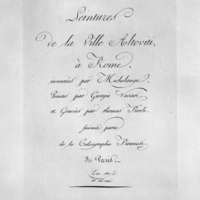 Peintures
de la Ville Altoviti,
à Rome,
inventées par Michelange,
Peintes par Giorgio Vasari
et Gravées par thomas Piroli.
faisant partie
de la Calcographie Piranesi
Paris